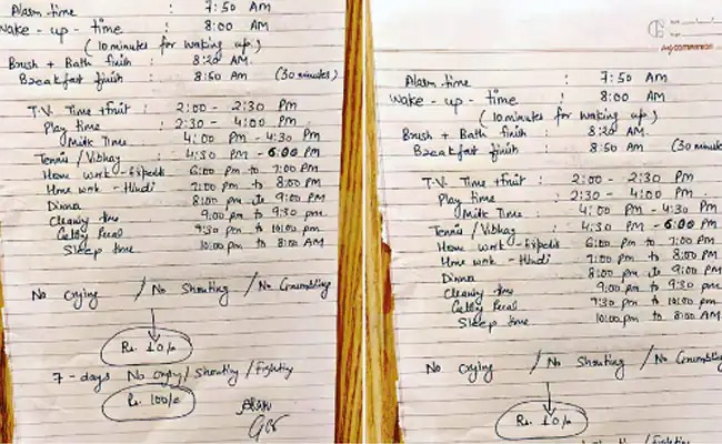 Alarm time : 7:50 AM
Wake - up - time : 8:00 AM
(10 minutes for waking up)
Brush + Bath finish : 8:20 AM.
Breakfast finish : 8:50 AM (30 minutes)
T.V. Time + fruit : 2:00 - 2:30 Pm
Play time : 2:30 - 4:00 Pm
Milk Time : 4:00 Pm - 4:30 Pm
Tennis / Vibhay : 4:30 Pm - 6:00 Pm
Home work - : 6:00 Pm to 7:00 Pm
Home work - Hindi : 7:00 pm to 8:00 PM
Dinner : 8:00 pm to 9:00 PM
Cleaning time : 9:00 pm to 9:30 pm
9:30 pm to 10:00 pm
Sleep time 10:00 pm to 8:00 AM
No Crying / No Shouting / No Grumbling
Rs. 10/-
7 - days No Crying / Shouting / Fighting
Rs. 100/-
Alarm time : 7:50 AM
Wake - up - time : 8:00 AM
(10 minutes for waking up)
Brush + Bath finish : 8:20 AM.
Breakfast finish : 8:50 AM (30
T.V. Time + fruit : 2:00 - 2:30 Pm
Play time : 2:30 - 4:00 Pm
Milk Time : 4:00 Pm - 4:30 Pm
Tennis / Vibhay : 4:30 Pm - 6:00 Pm
Home work - : 6:00 Pm to 7:00 Pm
Home work - Hindi : 7:00 pm to 8:00 PM
Dinner : 8:00 pm to 9:00 PM
Cleaning time : 9:00 pm to 9:30 pm
9:30 pm to 10:00 pm
Sleep time 10:00 pm to 8:00 AM
No Crying / No Shouting / No
Rs. 10/-